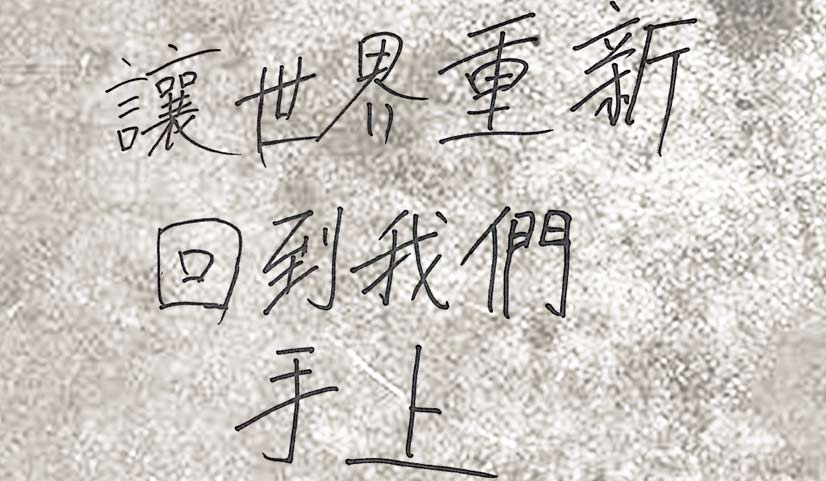 讓世界重新
回到我們
手上